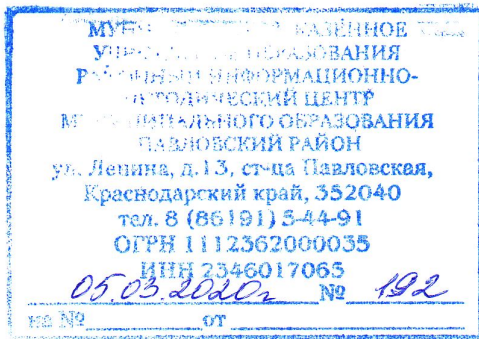 КАЗЁННОЕ
ОБРАЗОВАНИЯ
РАЙОННЫЙ ИНФОРМАЦИОННО-
МЕТОДИЧЕСКИЙ ЦЕНТР
МУНИЦИПАЛЬНОГО ОБРАЗОВАНИЯ
ПАВЛОВСКИЙ РАЙОН
ул. Ленина, д.13, ст-ца Павловская,
Краснодарский край, 352040
тел. 8 (86191) 5-44-91
ОГРН 1112362000035
ИНН 2346017065
05.03.2020г № 192
на № от